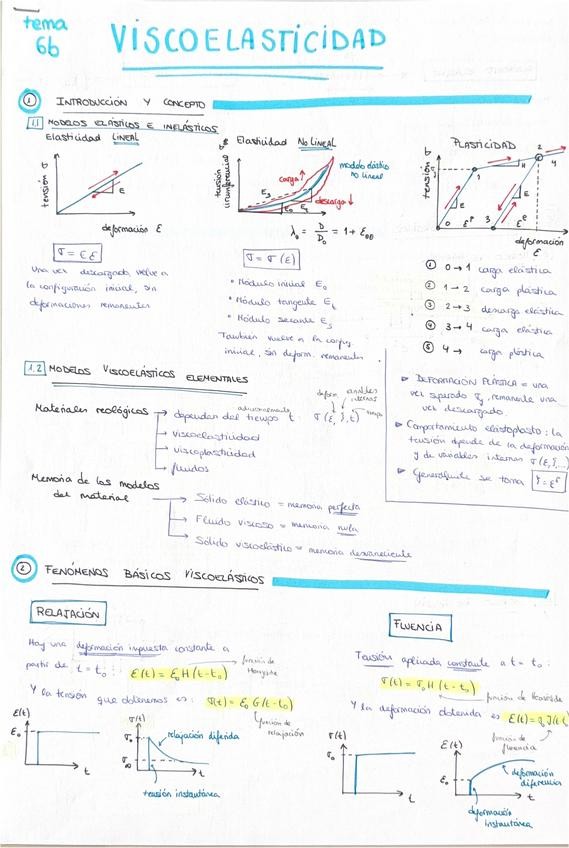 tema
6b
VISCOELASTICIDAD
① INTRODUCCIÓN Y CONCEPTO
1.1 MODELOS ELÁSTICOS E INELÁSTICOS
Elasticidad LINEAL
tensión σ
E
deformación ε
σ = Cε
Una vez descargado, vuelve a
la configuración inicial, sin
deformaciones remanentes
Elasticidad NO LINEAL
tensión
circunferencial
carga ↑
descarga ↓
modelo elástico
no lineal
Es
E0
Et
λθ = D/D0 = 1 + εθθ
σ = σ(ε)
• Módulo inicial E0
• Módulo tangente Et
• Módulo secante Es
También vuelve a la config.
inicial, sin deform. remanentes.
PLASTICIDAD
tensión σ
0 1 2 3 4
E
H
E
εp
εe
deformación
ε
① 0→1 carga elástica
② 1→2 carga plástica
③ 2→3 descarga elástica
④ 3→4 carga elástica
⑤ 4→ carga plástica
▷ DEFORMACIÓN PLÁSTICA = una
vez superado σy, remanente una
vez descargado.
▷ Comportamiento elastoplasto: la
tensión depende de la deformación
y de variables internas σ(ε, ξ, ...)
▷ Generalmente se toma ξ = εp
1.2 MODELOS VISCOELÁSTICOS ELEMENTALES
Materiales reológicos → dependen del tiempo t
adicionalmente
σ(ε, ξ, t)
deform.
variables
internas
tiempo
→ viscoelasticidad
→ viscoplasticidad
→ fluidos
Memoria de los modelos
del material
→ Sólido elástico = memoria perfecta
→ Fluido viscoso = memoria nula
→ Sólido viscoelástico = memoria desvaneciente
② FENÓMENOS BÁSICOS VISCOELÁSTICOS
RELAJACIÓN
Hay una deformación impuesta constante a
partir de t = t0: ε(t) = ε0 H(t-t0)
función de
Heaviside
Y la tensión que obtenemos es: σ(t) = ε0 G(t-t0)
función de
relajación
ε(t)
ε0
t
σ(t)
σ0
σ∞
relajación diferida
tensión instantánea
t
FLUENCIA
Tensión aplicada constante a t = t0:
σ(t) = σ0 H(t-t0)
función de Heaviside
Y la deformación obtenida es ε(t) = σ0 J(t
función de
fluencia
σ(t)
σ0
t
ε(t)
ε0
deformación
diferencia
deformación
instantánea
t